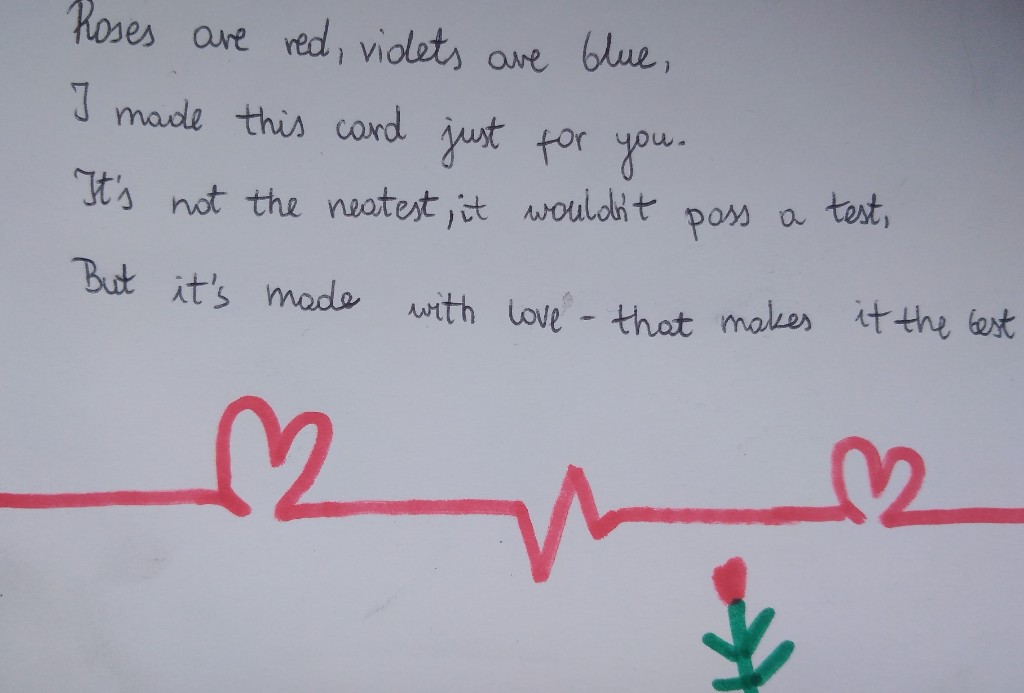 Roses are red, violets are blue,
I made this card just for you.
It's not the neatest, it wouldn't pass a test,
But it's made with love - that makes it the best